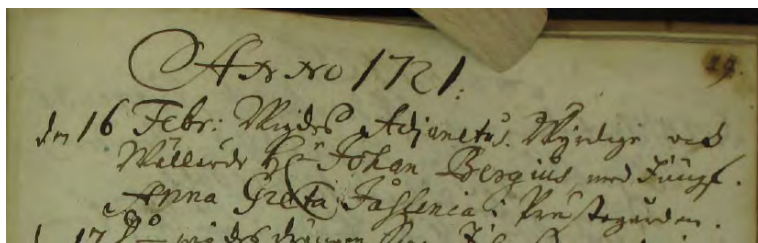 ANNO 1721.
29.
den 16 Febr: Wigdes Adjunctus. Wyrdige och
Wällärde Hr Johan Bergius med Jungf.
Anna Greta i Prästegården.
17